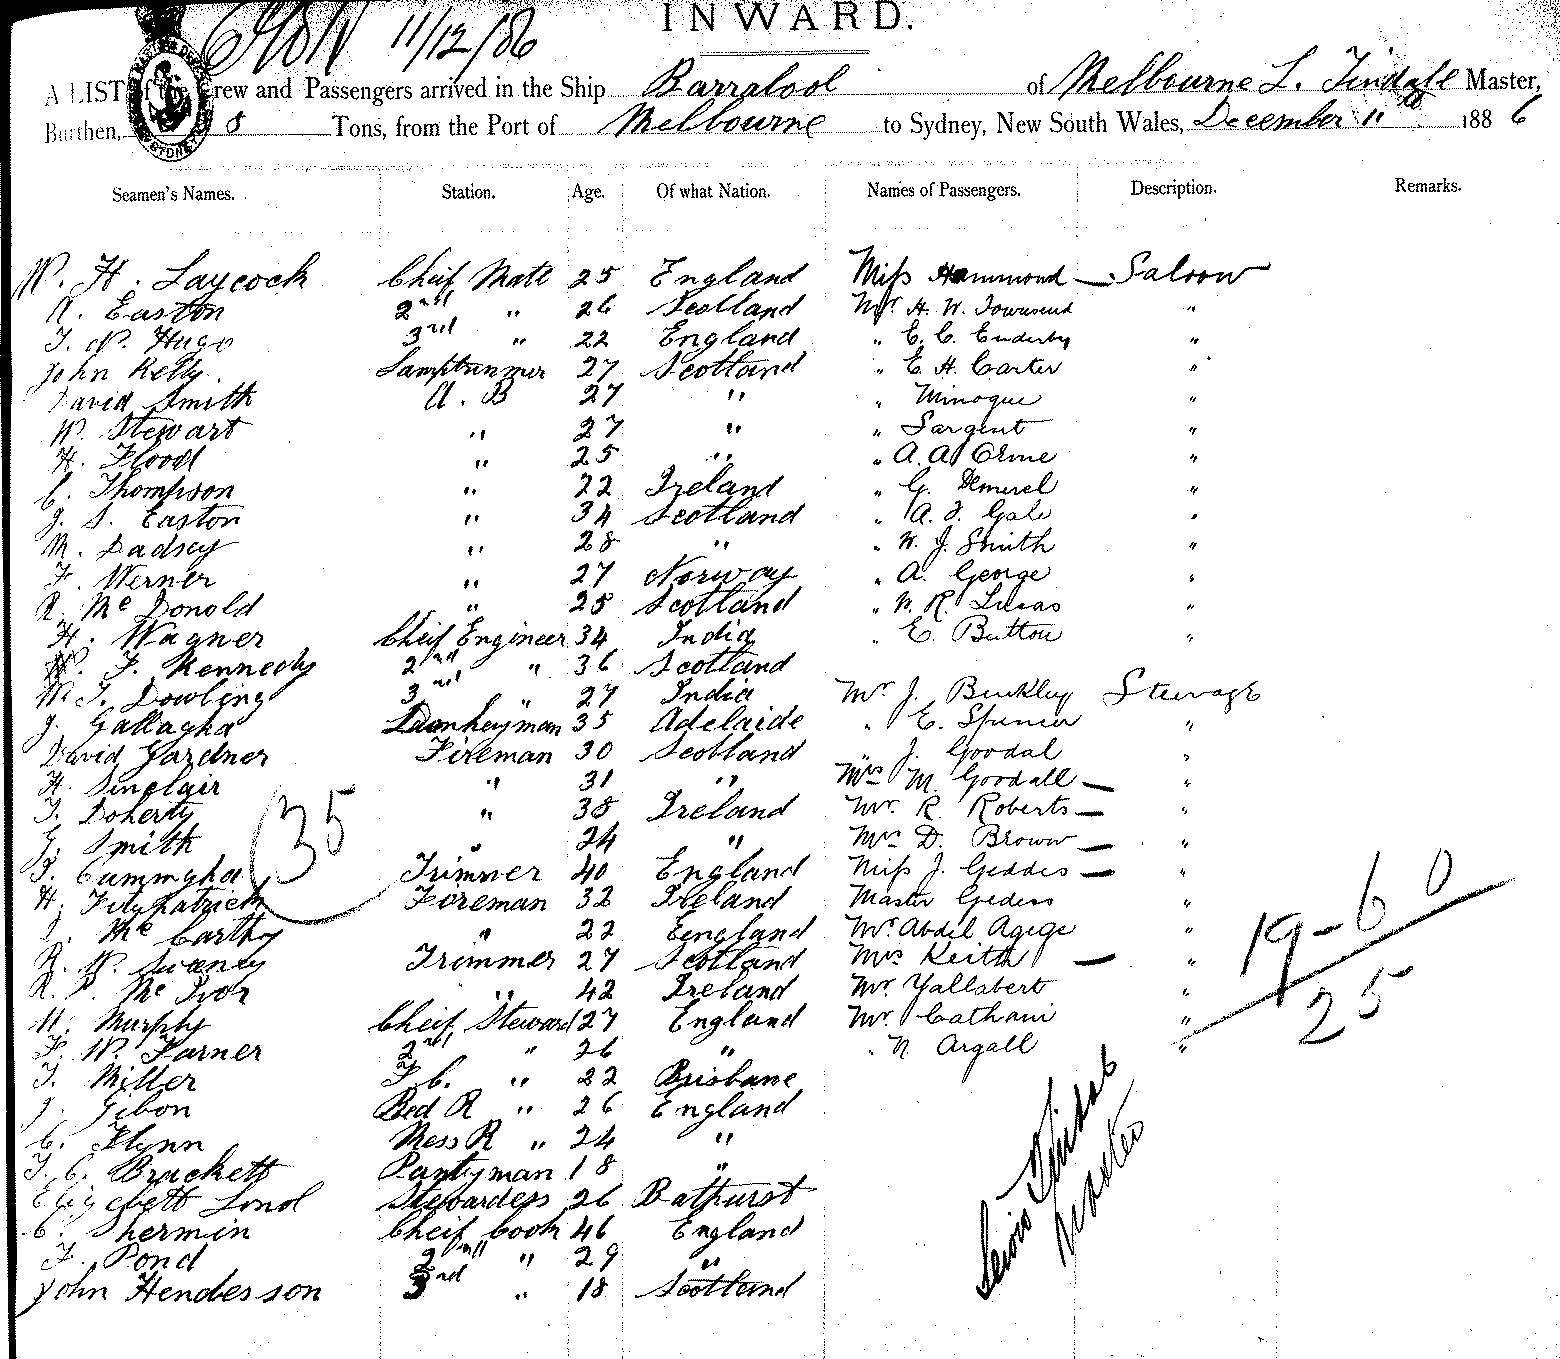 11/12/86
INWARD.
A LIST of the Crew and Passengers arrived in the Ship Barrabool of Melbourne L. Tindall Master,
Burthen, 8 Tons, from the Port of Melbourne to Sydney, New South Wales, December 11 1886
Seamen's Names. Station. Age. Of what Nation. Names of Passengers. Description. Remarks.
W. H. Laycock Cheif Mate 25 England Miss Hammond — Saloon
R. Easton 2nd " 26 Scotland Mr. H. W. Townsend "
T. N. Hugo 3rd " 22 England " E. C. Enderby "
John Kelly Lamptrimmer 27 Scotland " E. H. Carter "
David Smith A. B 27 " " Minogue "
W. Stewart " 27 " " Sargent "
H. Flood " 25 " " A. A. Orme "
C. Thompson " 22 Ireland " G. "
J. S. Easton " 34 Scotland " A. F. Gale "
M. Ladsay " 28 " " W. J. Smith "
F. Werner " 27 Norway " A. George "
R. Mc Donold " 25 Scotland " W. R. Lucas "
H. Wagner Cheif Engineer 34 India " E. Button "
W. F. Kennedy 2nd " 36 Scotland
M. J. Dowling 3rd " 27 India Mr J. Binkley Steerage
J. Gallagha Donkeyman 35 Adelaide " E. Spencer "
David Gardner Fireman 30 Scotland " J. Goodal "
H. Sinclair " 31 " Mrs M. Goodall — "
T. Doherty " 38 Ireland Mr. R. Roberts — "
G. Smith " 24 " Mrs D. Brown — "
T. Cummgha Trimmer 40 England Miss J. Geddis — "
H. Fitzpatrick Foreman 32 Ireland Master Gediss "
J. Mc Carthy " 22 Eengland Mr Abdil Agige "
R. W. Swaney Trimmer 27 Scotland Mrs Keith — "
R. P. Mc Ivor " 42 Ireland Mr. Yallabert "
W. Murphy Cheif Steward 27 England Mr. Cathani "
F. W. Farner 2nd " 26 " " N. Argall "
T. Miller F. C. " 22 Brisbane
J. Gibon Bed R " 26 England
C. Flynn Mess R " 24 "
T. C. Brackett Pantyman 18 "
Elizebett Lond Stewardess 26 Bathurst
C. Shermin Cheif Cook 46 England
F. Pond 2nd " 29 "
John Henderson 3rd " 18 Scotland
35
19-6 0
25
Master